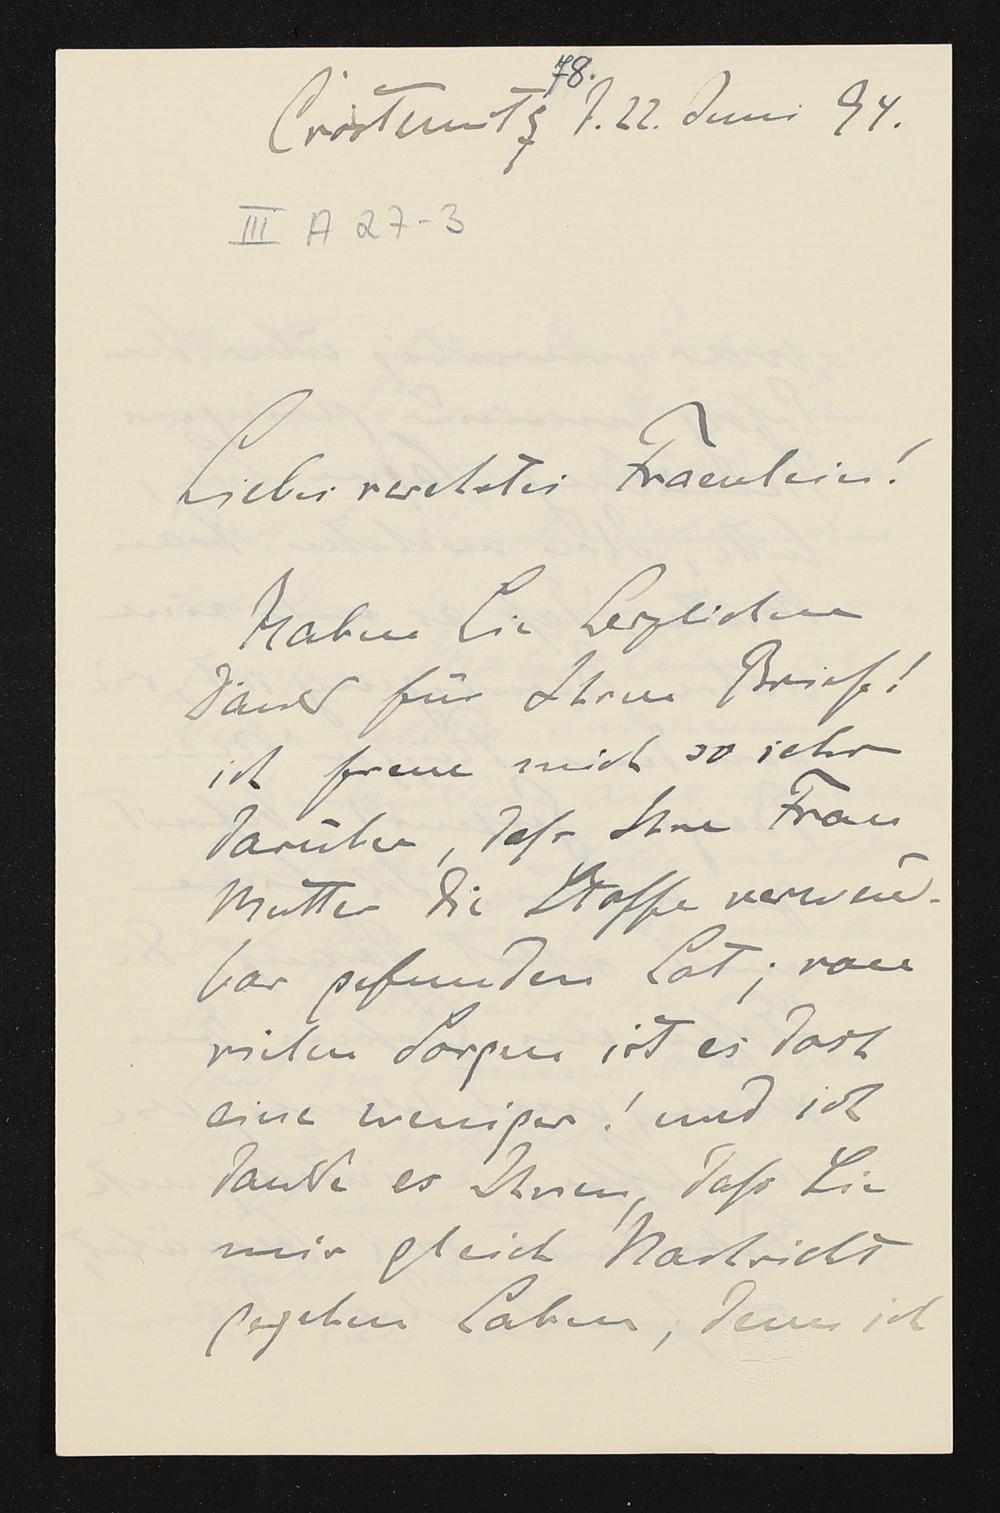 78.
Cröstewitz d. 22. Juni 94.
III A 27-3
Liebes verehrtes Fraeulein!
Haben Sie herzlichen
Dank für Ihren Brief!
ich freue mich so sehr
darüber, dass Ihre Frau
Mutter die Stoffe verwend-
bar gefunden hat; von
vielen Sorgen ist es doch
eine weniger! und ich
danke es Ihnen, dass Sie
mir gleich Nachricht
gegeben haben, denn ich